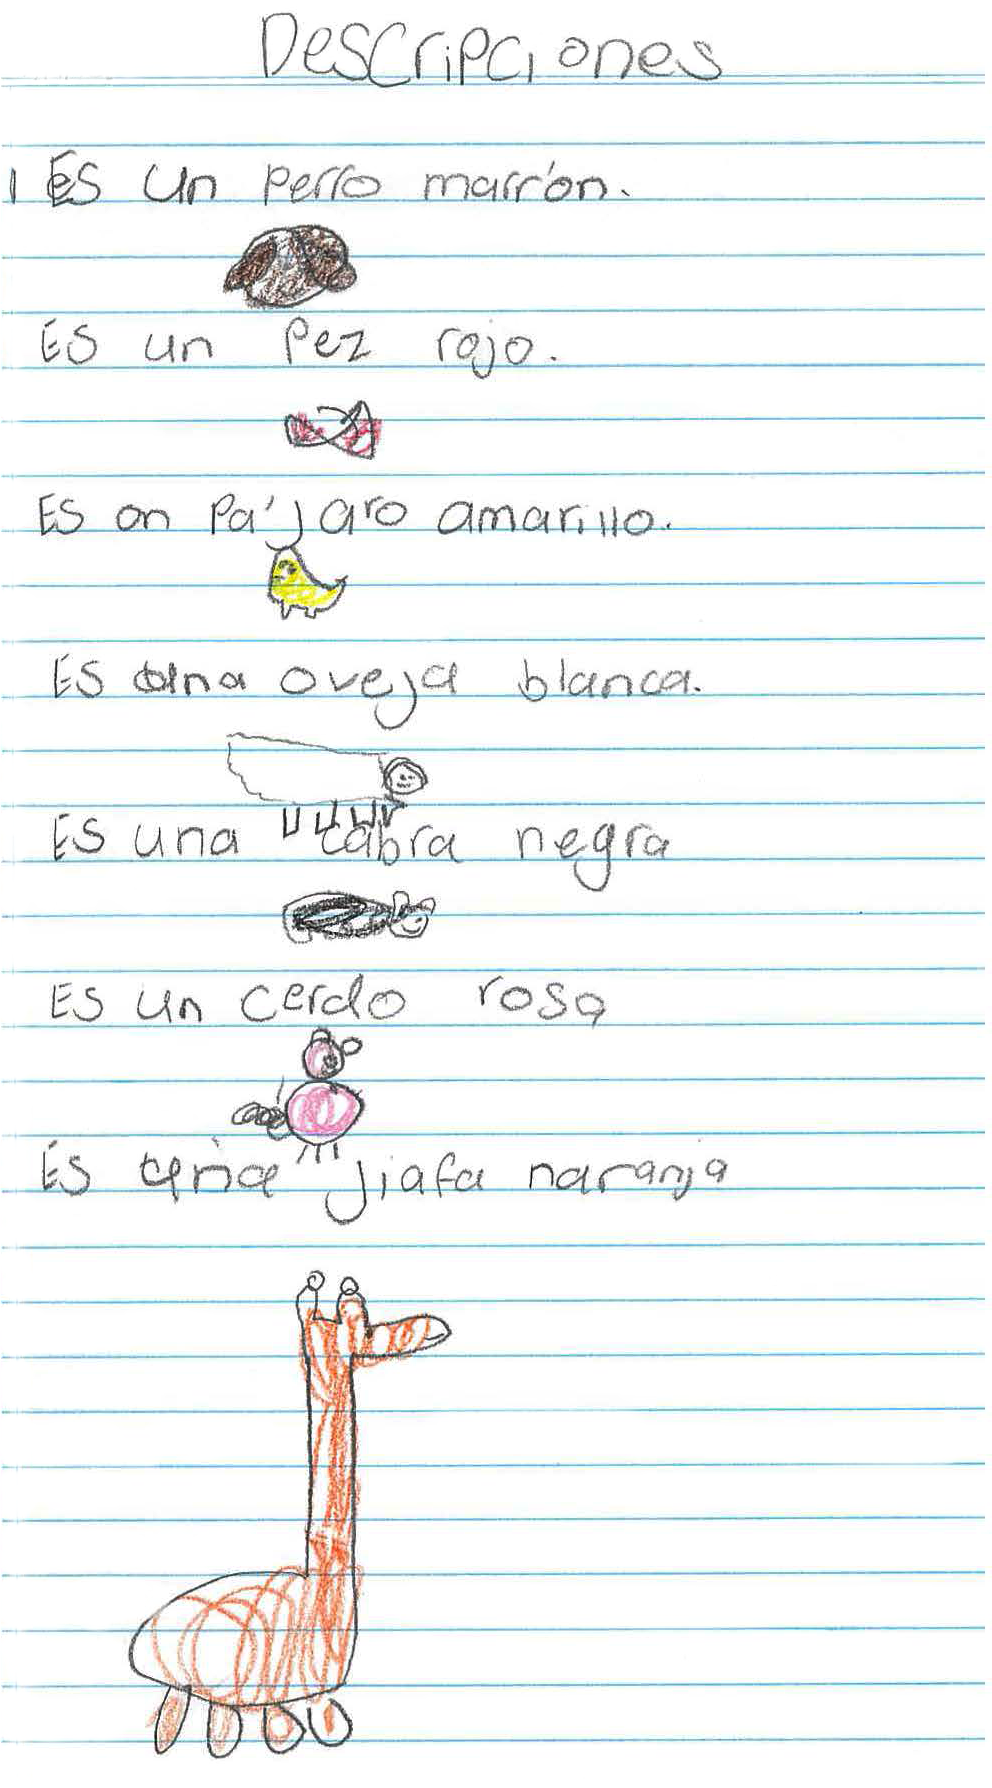 Descripciones
1 Es un perro marrón.
Es un pez rojo.
Es on pájaro amarillo.
Es una oveja blanca.
Es una cabra negra
Es un cerdo rosa
Es una jiafa naranja